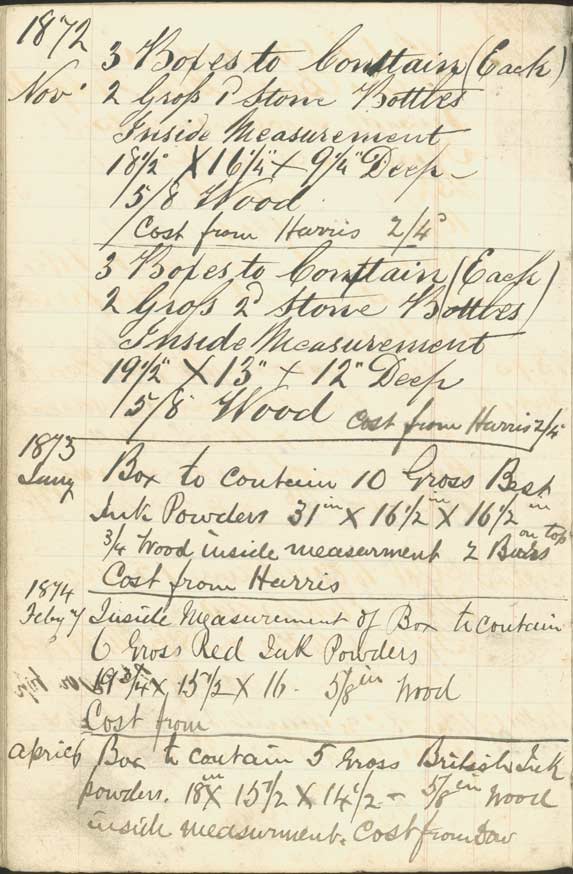 1872
3 Boxes to Conttain (Each)
Nov'
2 Gross 1d Stone Bottles
Inside Measurement
18 1/2" X 16 1/4" X 9 1/4" Deep
5/8 Wood
Cost from Harris 2/4d
3 Boxes to Conttain (Each)
2 Gross 2d Stone Bottles
Inside Measurement
19 1/2" X 13" X 12" Deep
5/8 Wood Cost from Harris 2/4
1873
Jany
Box to contain 10 Gross Best
Ink Powders 31in X 16 1/2in X 16 1/2in
on top
3/4 Wood inside measurment 2 Bars
Cost from Harris
1874
Feby 7 Inside Measurement of Box to contain
6 Gross Red Ink Powders
19 3/4 X 15 1/2 X 16 - 5/8in Wood
Cost from
April 6 Box to contain 5 Gross British Ink
powders. 18in X 15 1/2 X 14 1/2 - 5/8in Wood
inside measurment. Cost from